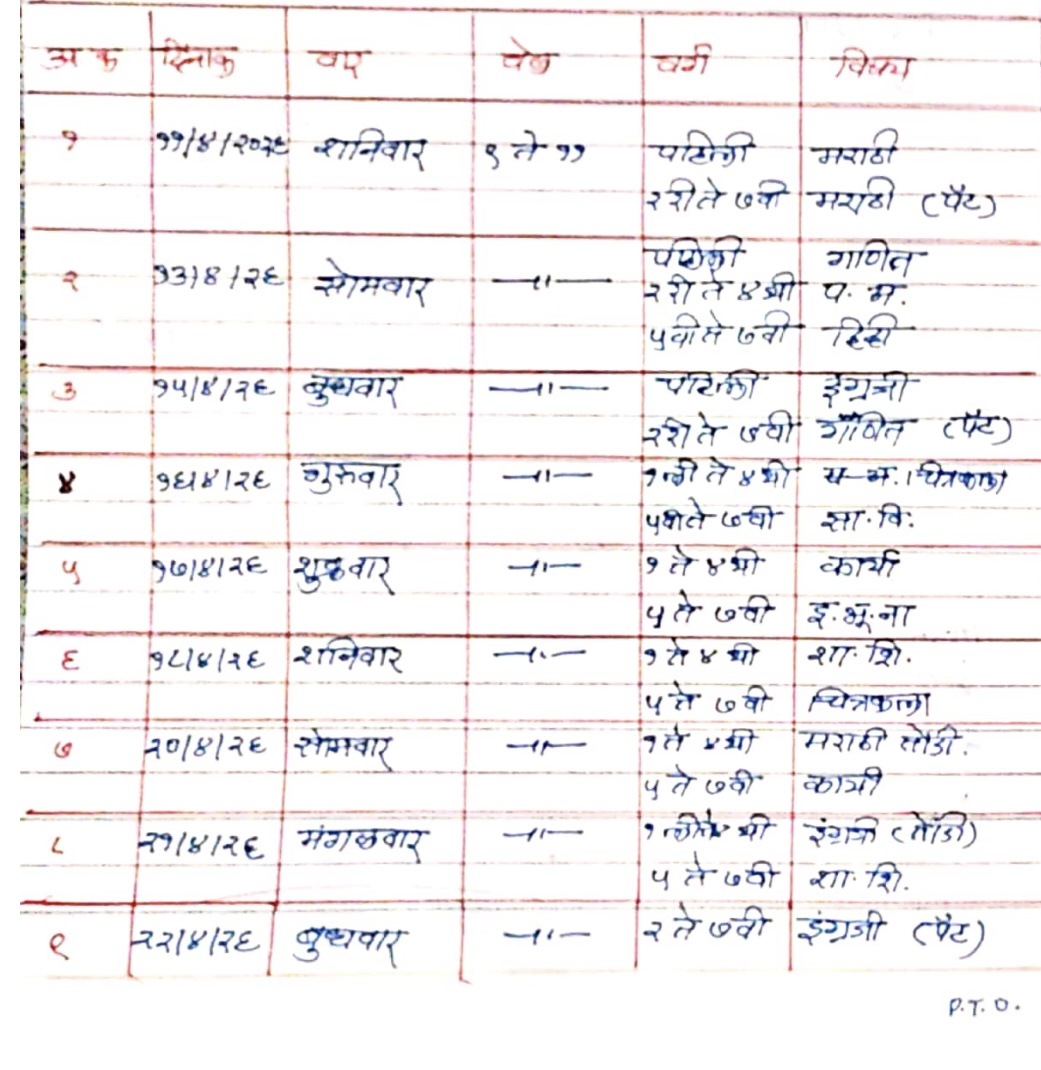 अ क्र दिनांक वार वेळ वर्ग विषय
१ ११/४/२०२६ शनिवार ९ ते ११ पहिली मराठी
२री ते ७वी मराठी (पॅट)
२ १३/४/२६ सोमवार —॥— पहिली गणित
२री ते ४थी प. अ.
५वी ते ७वी हिंदी
३ १५/४/२६ बुधवार —॥— पहिली इंग्रजी
२री ते ७वी गणित (पॅट)
४ १६/४/२६ गुरुवार —॥— १ली ते ४थी चित्रकला
५वी ते ७वी सा. वि.
५ १७/४/२६ शुक्रवार —॥— १ ते ४थी कार्या
५ ते ७वी इ. भू. ना
६ १८/४/२६ शनिवार —॥— १ ते ४थी शा. शि.
५ ते ७वी चित्रकला
७ २०/४/२६ सोमवार —॥— १ ते ४थी मराठी तोंडी.
५ ते ७वी कार्या
८ २१/४/२६ मंगळवार —॥— १ली ते ४थी इंग्रजी (तोंडी)
५ ते ७वी शा. शि.
९ २२/४/२६ बुधवार —॥— २ ते ७वी इंग्रजी (पॅट)
P.T.O.